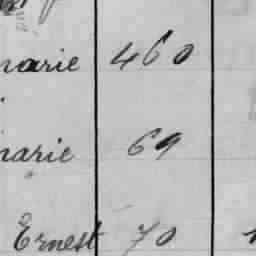 marie 460
marie 69
Ernest 70